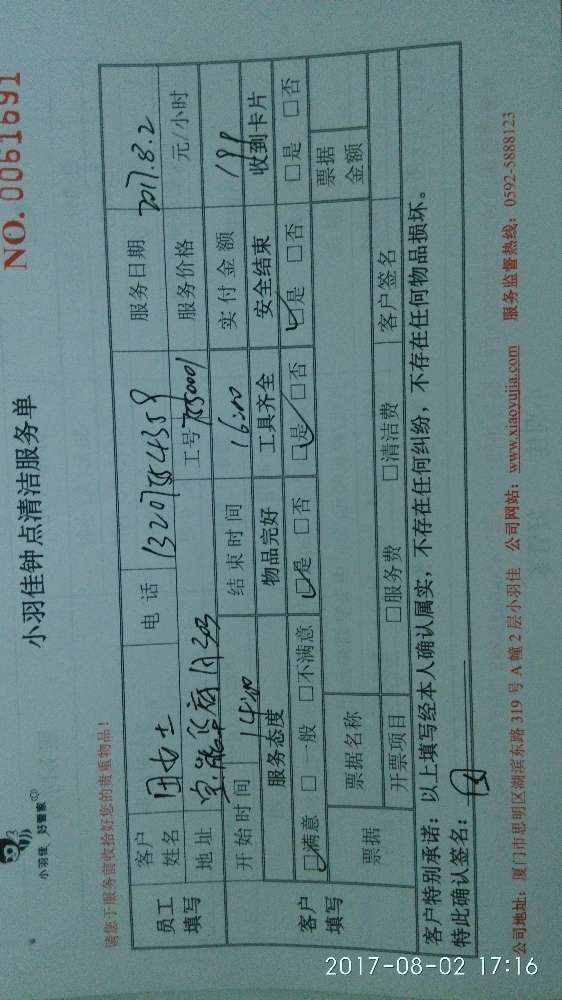 小羽佳 好管家
小羽佳钟点清洁服务单
NO. 0061691
请您于服务前收拾好您的贵重物品!
员工填写
客户姓名 电话 服务日期 2017.8.2
地址 工号 服务价格 元/小时
客户填写
开始时间 14:00 结束时间 16:00 实付金额
服务态度 物品完好 工具齐全 安全结束 收到卡片
☑满意 □一般 □不满意 ☑是 □否 ☑是 □否 ☑是 □否 □是 □否
票据 票据名称 票据金额
开票项目 □服务费 □清洁费 客户签名
客户特别承诺:以上填写经本人确认属实,不存在任何纠纷,不存在任何物品损坏。
特此确认签名:
公司地址:厦门市思明区湖滨东路 319 号 A 幢 2 层小羽佳 公司网站:www.xiaoyujia.com 服务监督热线:0592-5888123
2017-08-02 17:16